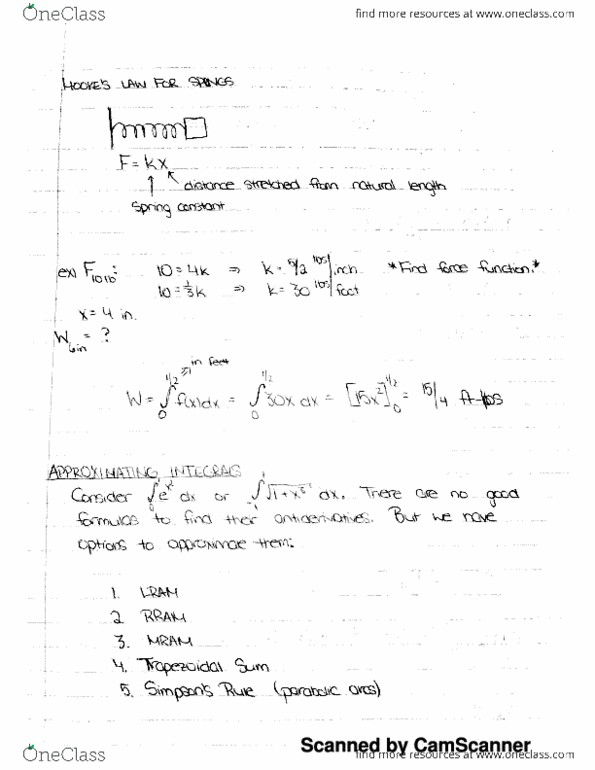 OneClass
find more resources at www.oneclass.com
HOOKE'S LAW FOR SPRINGS
F = kx
distance stretched from natural length
Spring constant
ex) F10lb: 10 = 4k ⇒ k = 5/2 lbs/inch *Find force function.*
10 = 1/3 k ⇒ k = 30 lbs/foot
x = 4 in.
W6in = ?
in feet
W = ∫₀^1/2 f(x)dx = ∫₀^1/2 30x dx = [15x²]₀^1/2 = 15/4 ft-lbs
APPROXIMATING INTEGRALS
Consider ∫₀ e^x² dx or ∫ √1+x³ dx. There are no good
formulas to find their antiderivatives. But we have
options to approximate them:
1. LRAM
2. RRAM
3. MRAM
4. Trapezoidal Sum
5. Simpson's Rule (parabolic arcs)
Scanned by CamScanner
OneClass
find more resources at www.oneclass.com